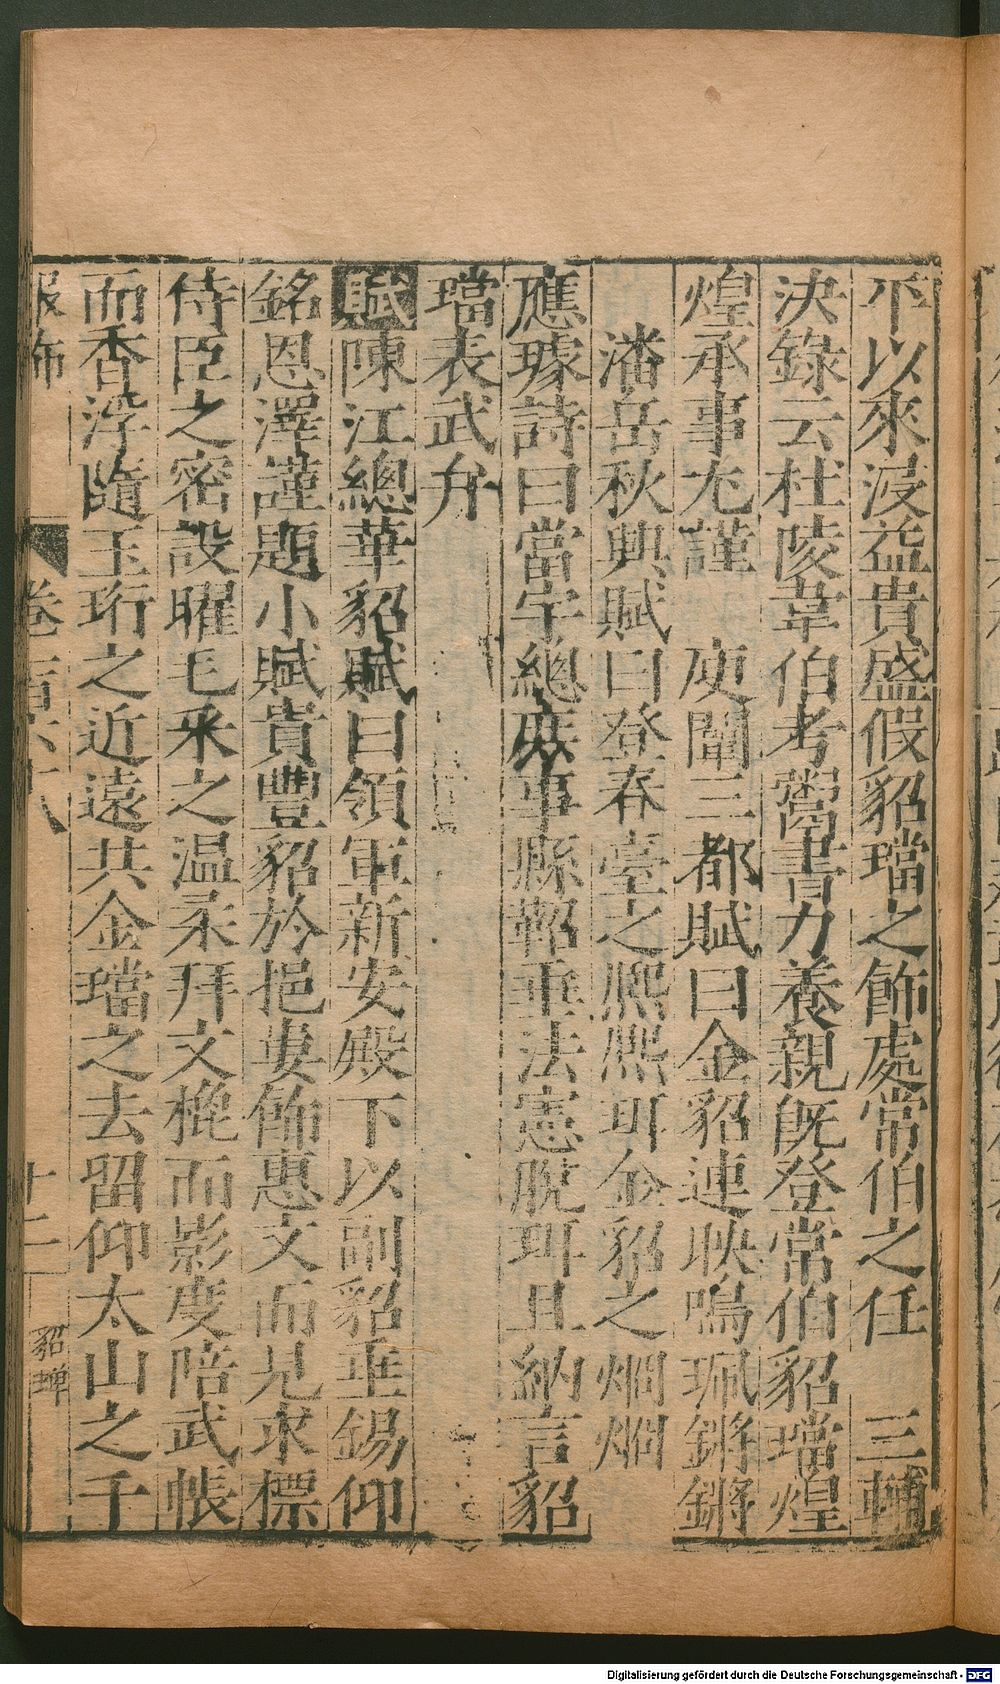 不以來浸益貴盛假貂璫之飾處常伯之任　三輔
決錄云杜陵韋伯考鬻書力養親旣登常伯貂璫煌
煌承事尤謹　庾闡三都賦曰金貂連映鳴珮鏘鏘
潘岳秋興賦曰登春臺之熙熙珥金貂之烱烱
應璩詩曰當宇總庶事縣鞀垂法憲脫珥且納言貂
璫表武弁
賦陳江總華貂賦曰領軍新安殿下以副貂垂錫仰
銘恩澤謹題小賦貴豐貂於挹婁飾惠文而見求標
侍臣之密設曜毛采之温柔拜文㮰而影度陪武帳
而香浮隨玉珩之近遠共金璫之去留仰太山之千
服飾　卷　十二　貂蟬
Digitalisierung gefördert durch die Deutsche Forschungsgemeinschaft - DFG